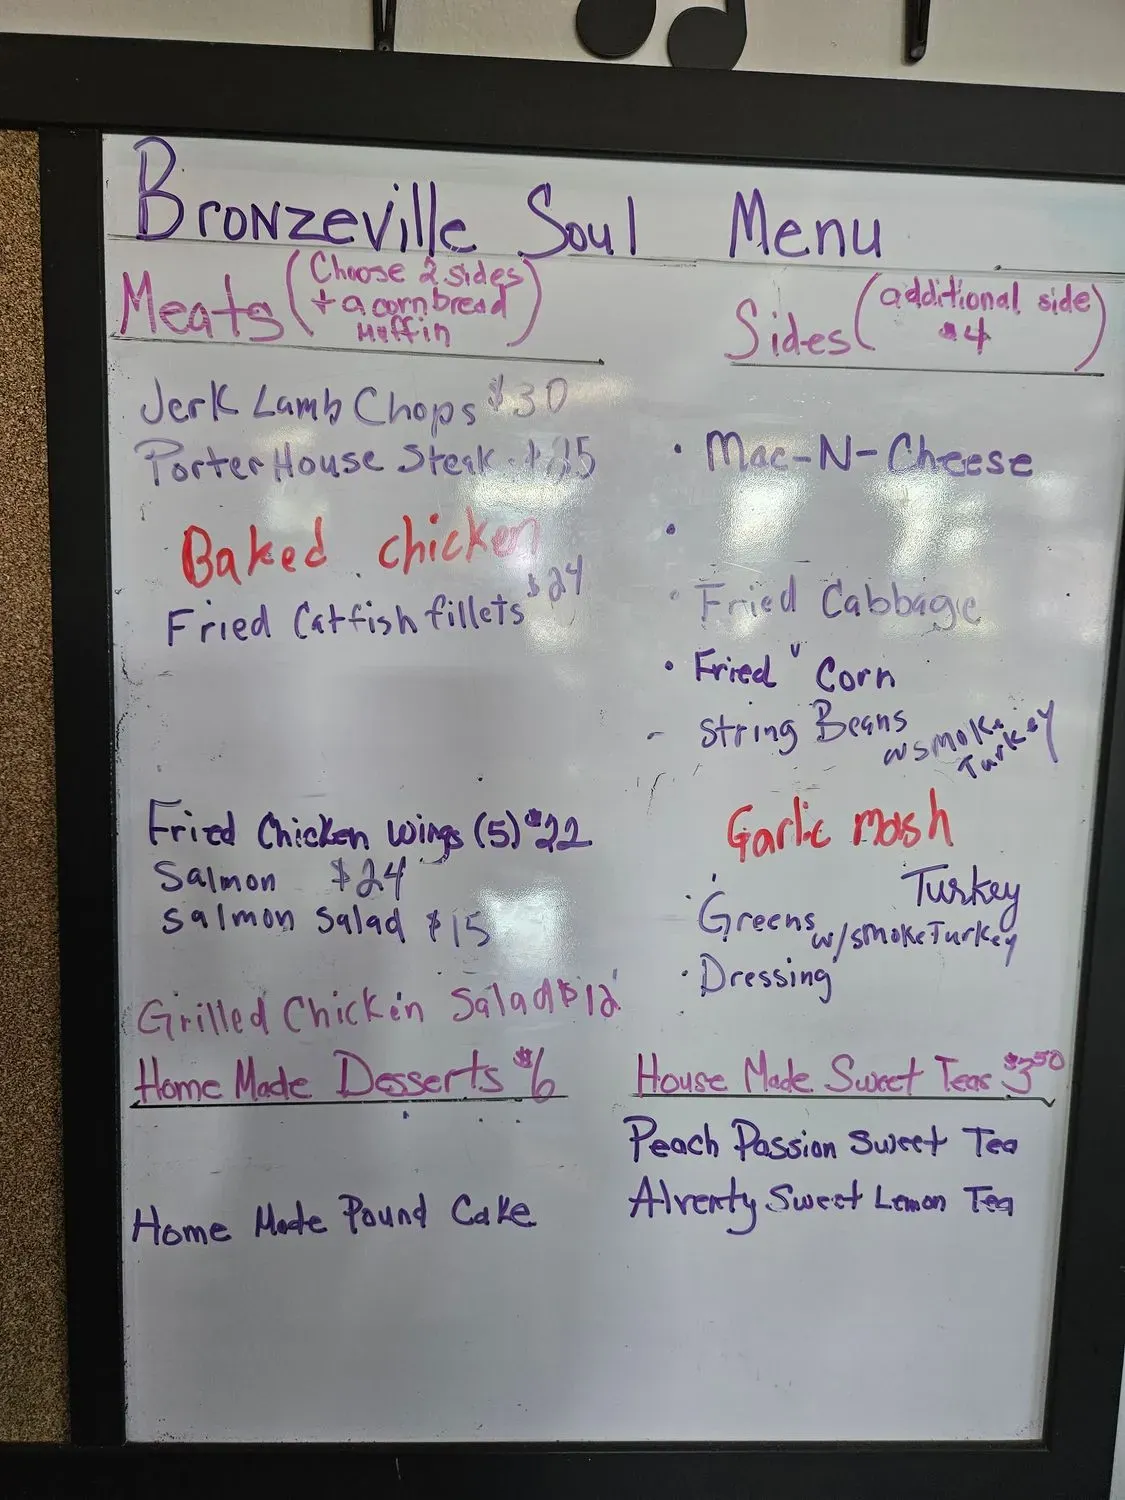 Bronzeville Soul Menu
Meats (Choose 2 sides
+ a corn bread
Muffin)
Jerk Lamb Chops $30
Porter House Steak
Baked chicken
Fried Catfish fillets $24
Fried Chicken wings (5) $22
Salmon $24
Salmon Salad $15
Grilled Chicken Salad $12
Home Made Desserts $6
Home Made Pound Cake
Sides (additional side
$4)
• Mac-N-Cheese
•
• Fried Cabbage
• Fried Corn
- String Beans w smoke
Turkey
Garlic mash
Turkey
• Greens w/smoke Turkey
• Dressing
House Made Sweet Teas $3.50
Peach Passion Sweet Tea
Alrenty Sweet Lemon Tea